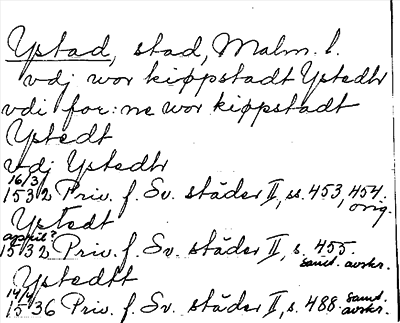 Ystad, stad, Malm. l.
vdj wor kiøpstadt Ystedtr
vdi for:ne wor kiøpstadt
Ystedt
vdj Ystedtr
16/3
1532 Priv. f. Sv. städer II, ss. 453, 454.
orig.
Ystedt
april?
1532 Priv. f. Sv. städer II, s. 455.
samt. avskr.
Ystedtt
14/4
1536 Priv. f. Sv. städer II, s. 488. samt. avskr.